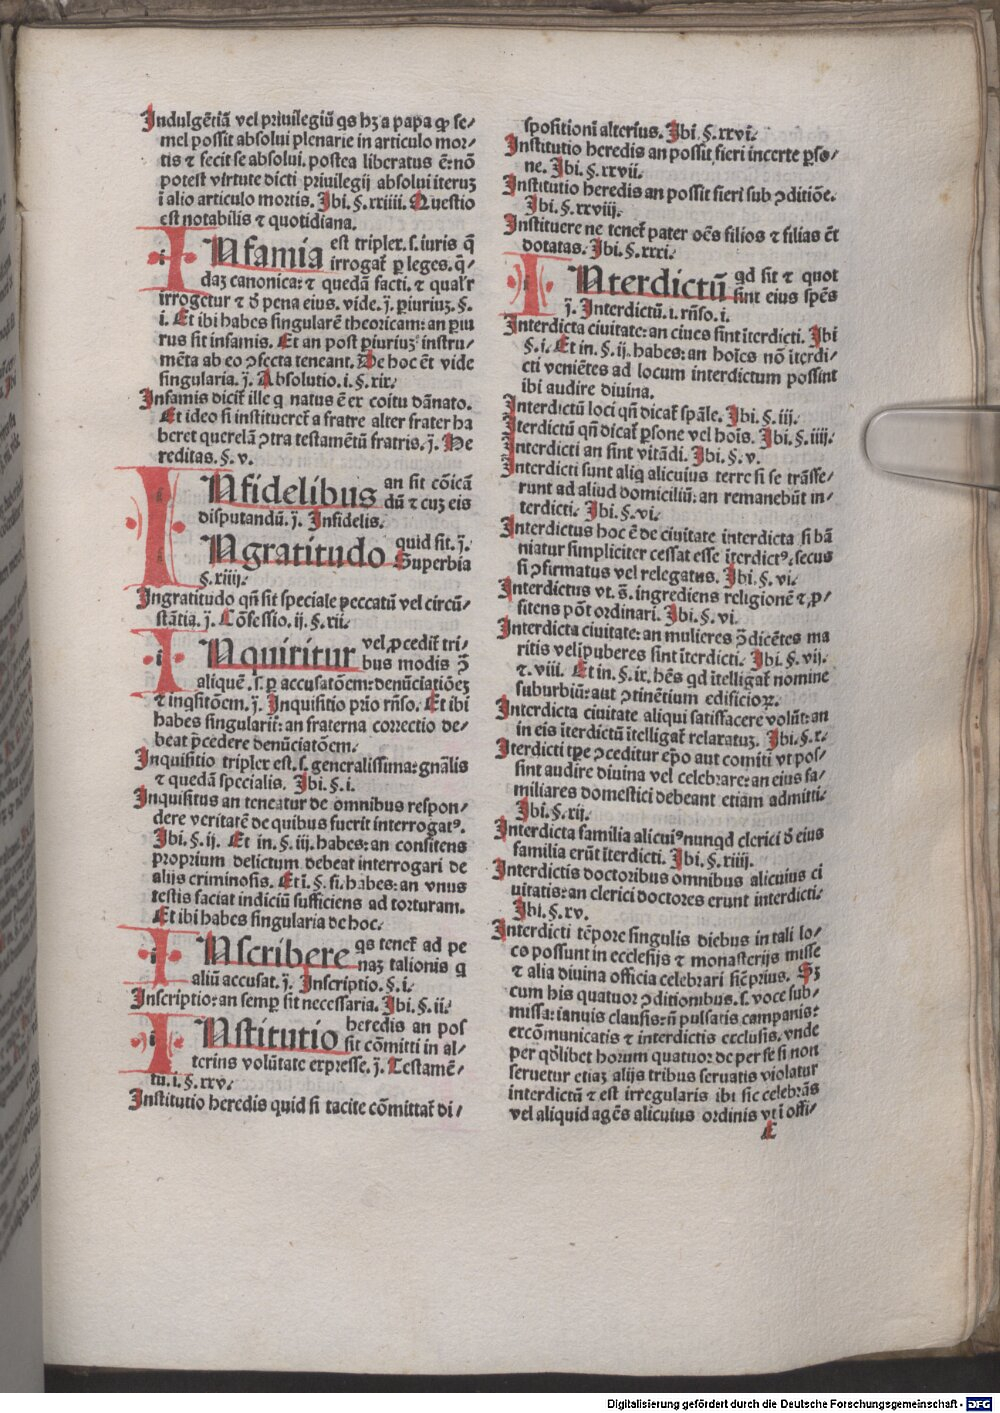 Indulgētiā vel priuilegiū qs hꝫ a papa ꝙ se⸗
mel possit absolui plenarie in articulo mor⸗
tis ⁊ fecit se absolui. postea liberatus ē: nō
potest virtute dicti priuilegij absolui iteruꝫ
ī alio articulo mortis. Ibi. §. xxiiii. Questio
est notabilis ⁊ quotidiana.
INfamia est triplex. s. iuris q̄
irrogat̄ ꝑ leges. q̄⸗
daꝫ canonica: ⁊ quedā facti. ⁊ qual'r
irrogetur ⁊ ō pena eius. vide. j̄. ꝑiuriuꝫ. §.
i. Et ibi habes singularē theoricam: an ꝑiu
rus sit infamis. Et an post ꝑiuriuꝫ instru⸗
mēta ab eo ↄfecta teneant. De hoc ēt vide
singularia. j̄. Absolutio. i. §. xix.
Infamis dicit̄ ille q natus ē ex coitu dānato.
Et ideo si institueret̄ a fratre alter frater ha
beret querelā ↄtra testamētū fratris. j̄. He
reditas. §. v.
INfidelibus an sit cōicā
dū ⁊ cuꝫ eis
disputandū. j̄. Infidelis.
INgratitudo quid sit. j̄.
Superbia
§. xiiij.
Ingratitudo qn̄ sit speciale peccatū vel circū⸗
stātia. j̄. Cōfessio. ij. §. xii.
INquiritur vel ꝓcedit̄ tri⸗
bus modis ↄ̄
aliquē. s. ꝑ accusatōem: denūciatiōeꝫ
⁊ inqsitōem. j̄. Inquisitio prio rn̄so. Et ibi
habes singularit̄: an fraterna correctio de⸗
beat p̄cedere denūciatōem.
Inquisitio triplex est. s. generalissima: gn̄alis
⁊ quedā specialis. Ibi. §. i.
Inquisitus an teneatur de omnibus respon⸗
dere veritatē de quibus fuerit interrogatꝰ.
Ibi. §. ij. Et in. §. iij. habes: an confitens
proprium delictum debeat interrogari de
alijs criminosis. Et ī. §. fi. habes: an vnus
testis faciat indiciū sufficiens ad torturam.
Et ibi habes singularia de hoc.
INscribere qs tenet̄ ad pe
naꝫ talionis q
aliū accusat. j̄. Inscriptio. §. i.
Inscriptio: an semꝑ sit necessaria. Ibi. §. ii.
INstitutio heredis an pos
sit cōmitti in al⸗
terius volūtate expresse. j̄. Testamē⸗
tū. i. §. xxv.
Institutio heredis quid si tacite cōmittat̄ di⸗
spositioni alterius. Ibi. §. xxvi.
Institutio heredis an possit fieri incerte ꝑso⸗
ne. Ibi. §. xxvii.
Institutio heredis an possit fieri sub ↄditiōe.
Ibi. §. xxviij.
Instituere ne tenet̄ pater oēs filios ⁊ filias ēt
dotatas. Ibi. §. xxxi.
INterdictū qd sit ⁊ quot
sint eius spēs
j̄. Interdictū. i. rn̄so. i.
Interdicta ciuitate: an ciues sint īterdicti. Ibi
§. i. Et in. §. ij. habes: an hoīes nō īterdi⸗
cti veniētes ad locum interdictum possint
ibi audire diuina.
Interdictū loci qn̄ dicat̄ spāle. Ibi. §. iij.
Iterdictū qn̄ dicat̄ ꝑsone vel hoīs. Ibi. §. iiij.
Interdicti an sint vitādi. Ibi. §. v.
Interdicti sunt aliq alicuius terre si se trāsse⸗
runt ad aliud domiciliū: an remanebūt in⸗
terdicti. Ibi. §. vi.
Interdictus hoc ē de ciuitate interdicta si bā
niatur simpliciter cessat esse īterdictꝰ. secus
si ↄfirmatus vel relegatus. Ibi. §. vi.
Interdictus vt. s̄. ingrediens religionē ⁊ ꝓ⸗
fitens pōt ordinari. Ibi. §. vi.
Interdicta ciuitate: an mulieres ↄ̄dicētes ma
ritis vel ipuberes sint īterdicti. Ibi. §. vij.
⁊. viii. Et in. §. ix. hēs qd ītelligat̄ nomine
suburbiū: aut ↄtinētium edificioꝝ.
Interdicta ciuitate aliqui satisfacere volūt: an
in eis īterdictū ītelligat̄ relaxatuꝫ. Ibi. §. x.
Iterdicti tꝑe ↄceditur epō aut comiti vt pos⸗
sint audire diuina vel celebrare: an eius fa⸗
miliares domestici debeant etiam admitti.
Ibi. §. xij.
Interdicta familia alicuiꝰ nunqd clerici ō eius
familia erūt īterdicti. Ibi. §. xiiij.
Interdictis doctoribus omnibus alicuius ci
uitatis: an clerici doctores erunt interdicti.
Ibi. §. xv.
Interdicti tēpore singulis diebus in tali lo⸗
co possunt in ecclesijs ⁊ monasterijs misse
⁊ alia diuina officia celebrari sic̄ prius. Sꝫ
cum his quatuor ↄditionibus. s. voce sub⸗
missa: ianuis clausis: n̄ pulsatis campanis:
excōmunicatis ⁊ interdictis exclusis. vnde
per qōlibet horum quatuor de per se si non
seruetur etiaꝫ alijs tribus seruatis violatur
interdictū ⁊ est irregularis ibi sic celebrās
vel aliquid agēs alicuius ordinis vt ī offi⸗
E
Digitalisierung gefördert durch die Deutsche Forschungsgemeinschaft - DFG